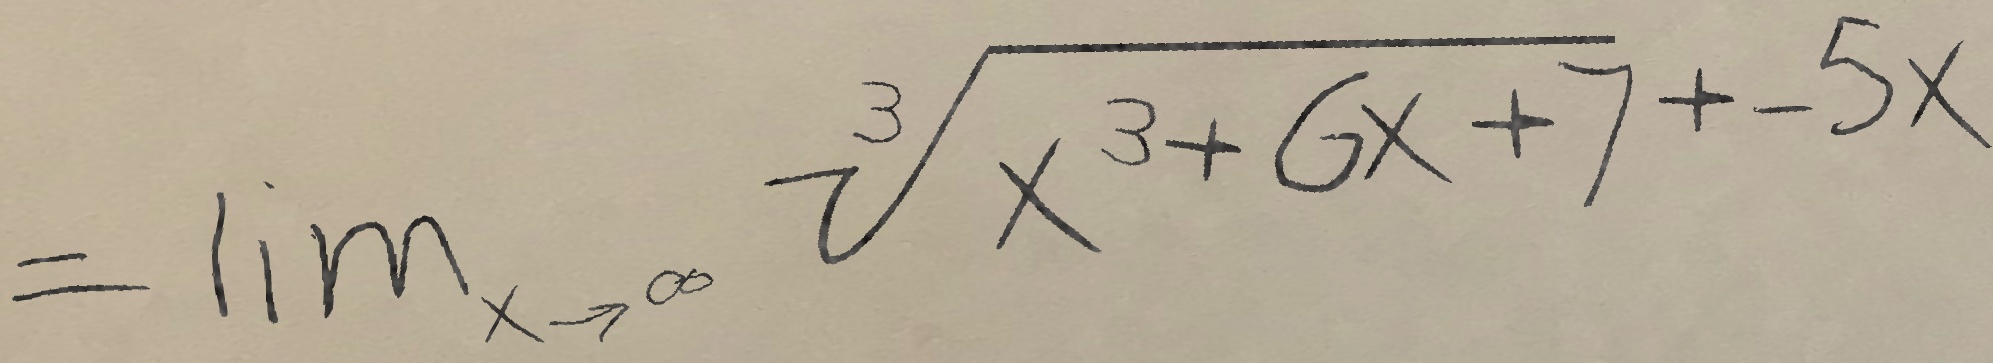 = lim_{x→∞} \sqrt[3]{x^3+6x+7} + -5x